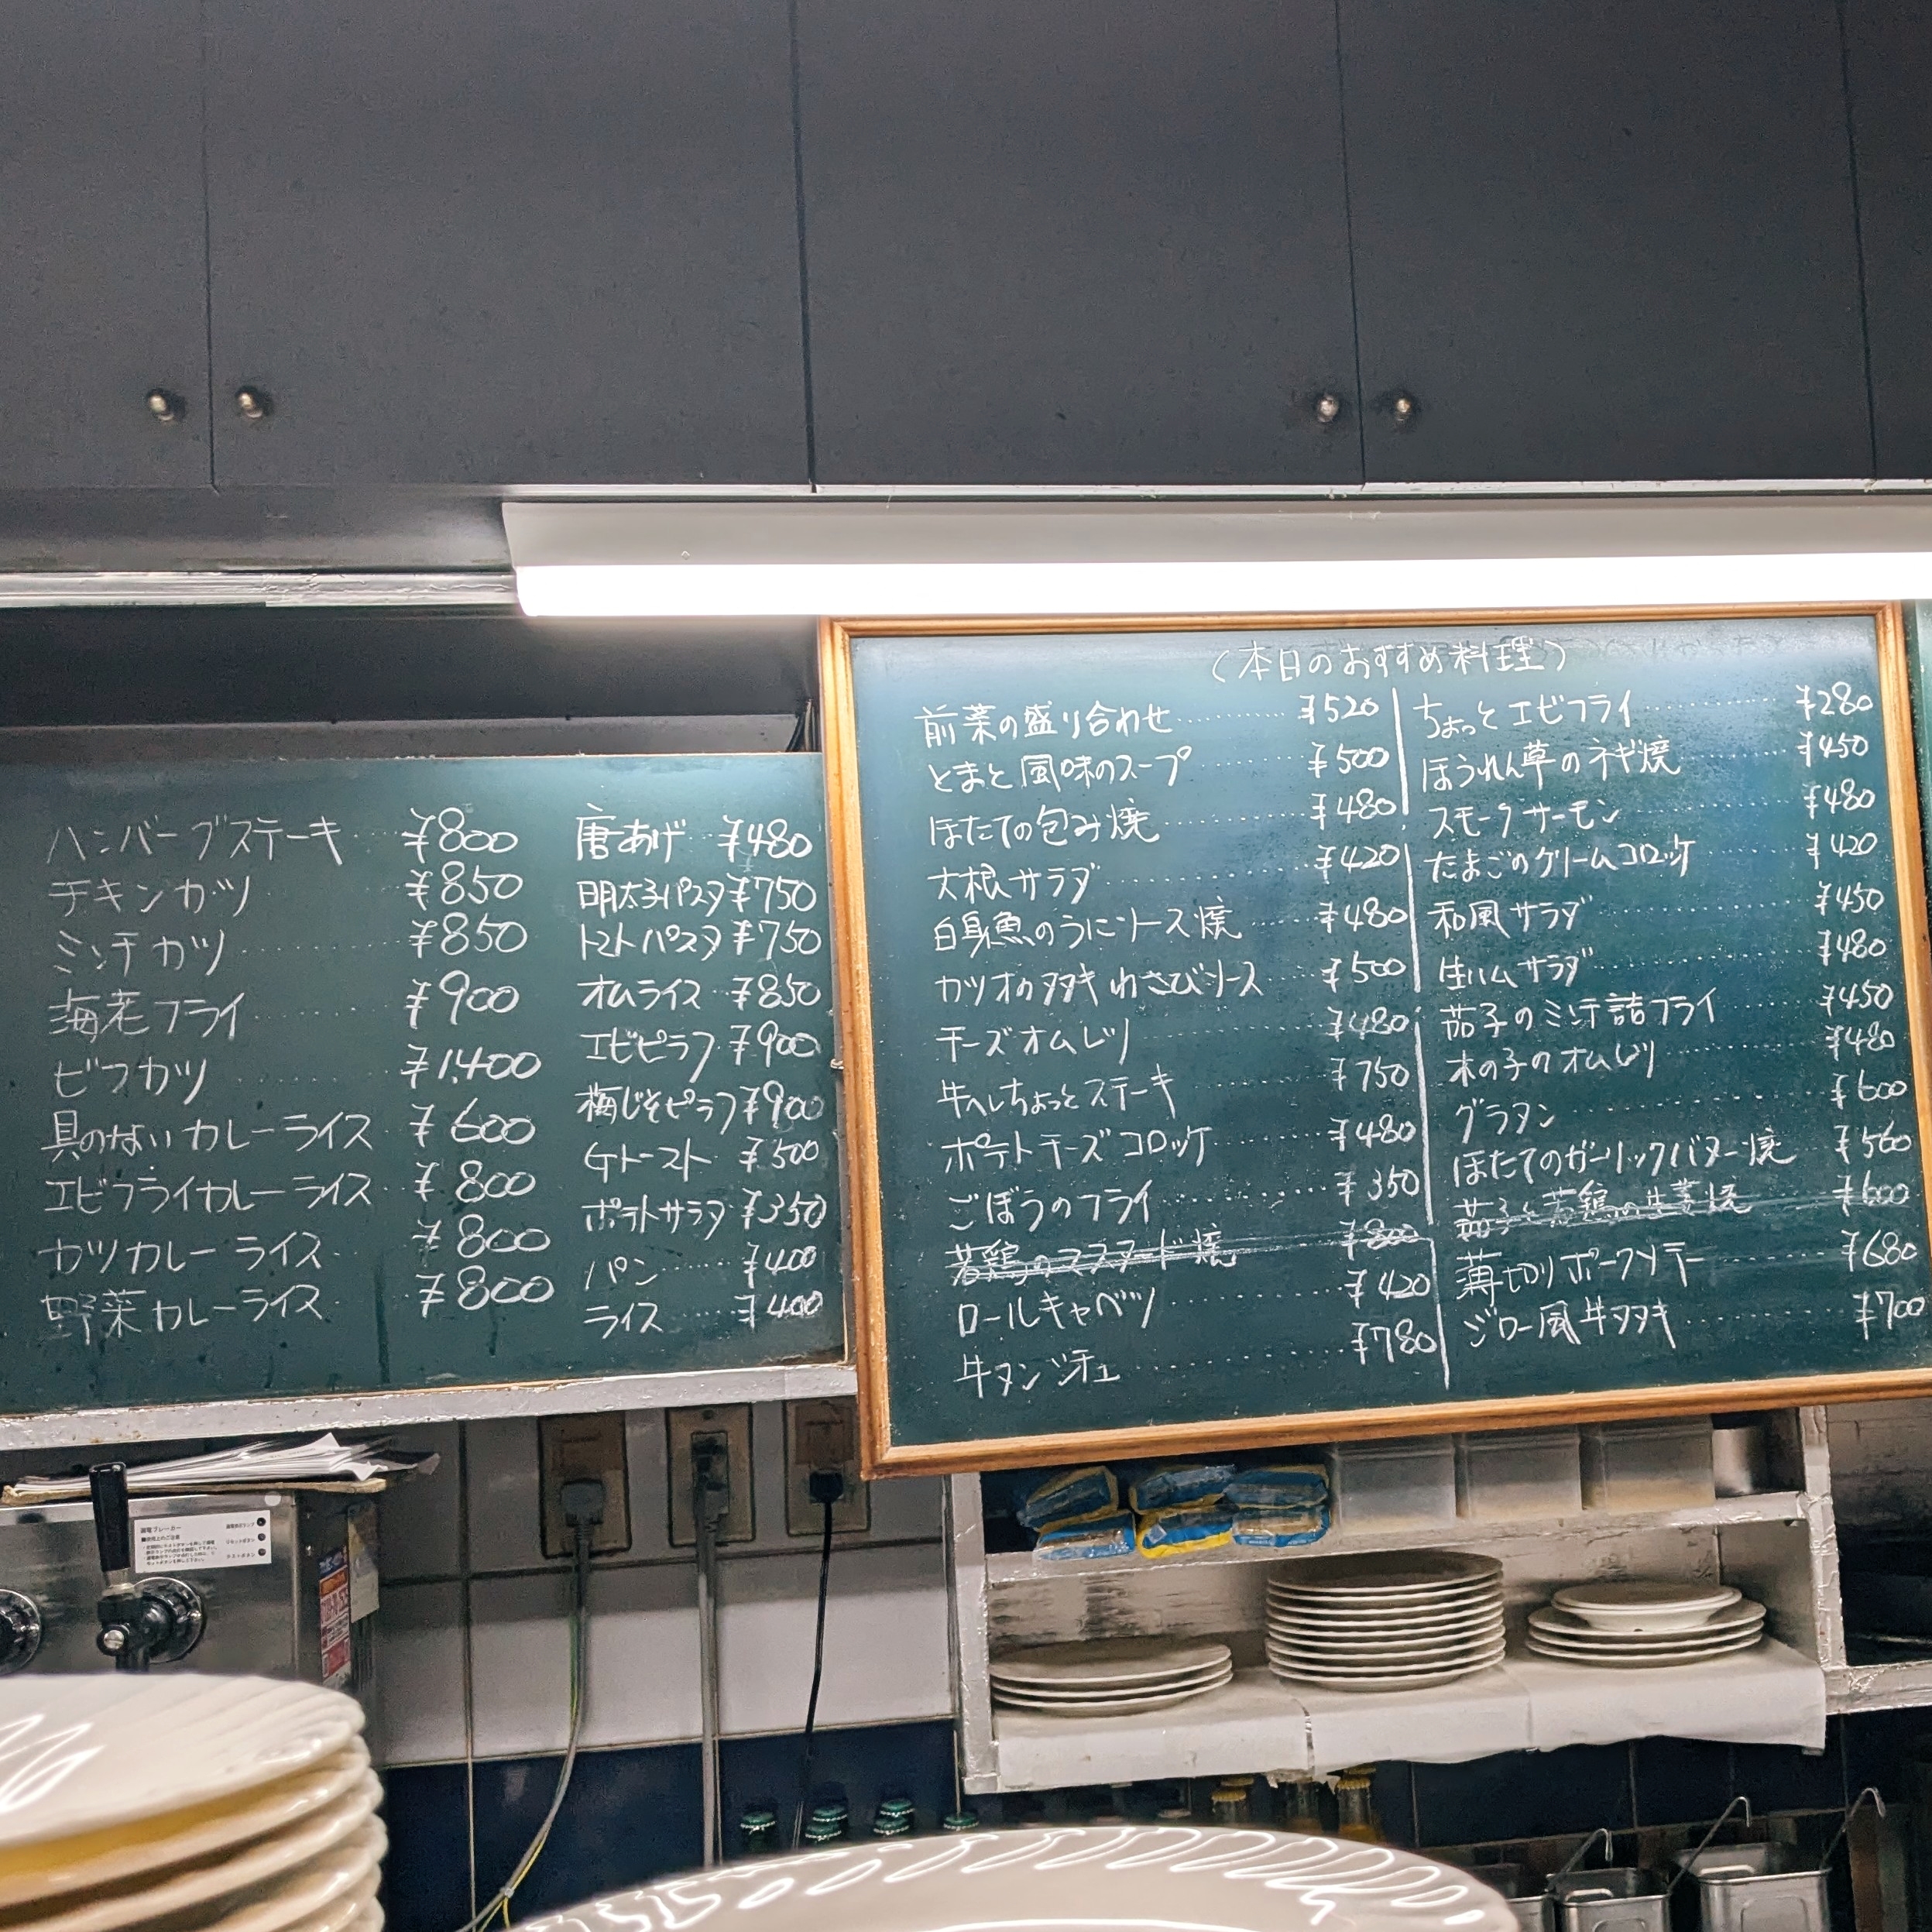 ハンバーグステーキ ¥800
チキンカツ ¥850
ミンチカツ ¥850
海老フライ ¥900
ビフカツ ¥1,400
具のないカレーライス ¥600
エビフライカレーライス ¥800
カツカレーライス ¥800
野菜カレーライス ¥800
唐あげ ¥480
明太子パスタ ¥750
トマトパスタ ¥750
オムライス ¥850
エビピラフ ¥900
梅じそピラフ ¥900
Gトースト ¥500
ポテトサラダ ¥350
パン ¥400
ライス ¥400
(本日のおすすめ料理)
前菜の盛り合わせ ¥520
とまと風味のスープ ¥500
ほたての包み焼 ¥480
大根サラダ ¥420
白身魚のうにソース焼 ¥480
カツオのタタキわさびソース ¥500
チーズオムレツ ¥480
牛ヘレちょっとステーキ ¥750
ポテトチーズコロッケ ¥480
ごぼうのフライ ¥350
若鶏のマスタード焼 ¥800
ロールキャベツ ¥420
牛タンシチュー ¥780
ちょっとエビフライ ¥280
ほうれん草のネギ焼 ¥450
スモークサーモン ¥480
たまごのクリームコロッケ ¥420
和風サラダ ¥450
生ハムサラダ ¥480
茄子のミンチ詰フライ ¥450
木の子のオムレツ ¥480
グラタン ¥600
ほたてのガーリックバター焼 ¥560
茄子と若鶏の生姜焼 ¥600
薄切りポークソテー ¥680
ジロー風牛タタキ ¥700
漏電ブレーカー